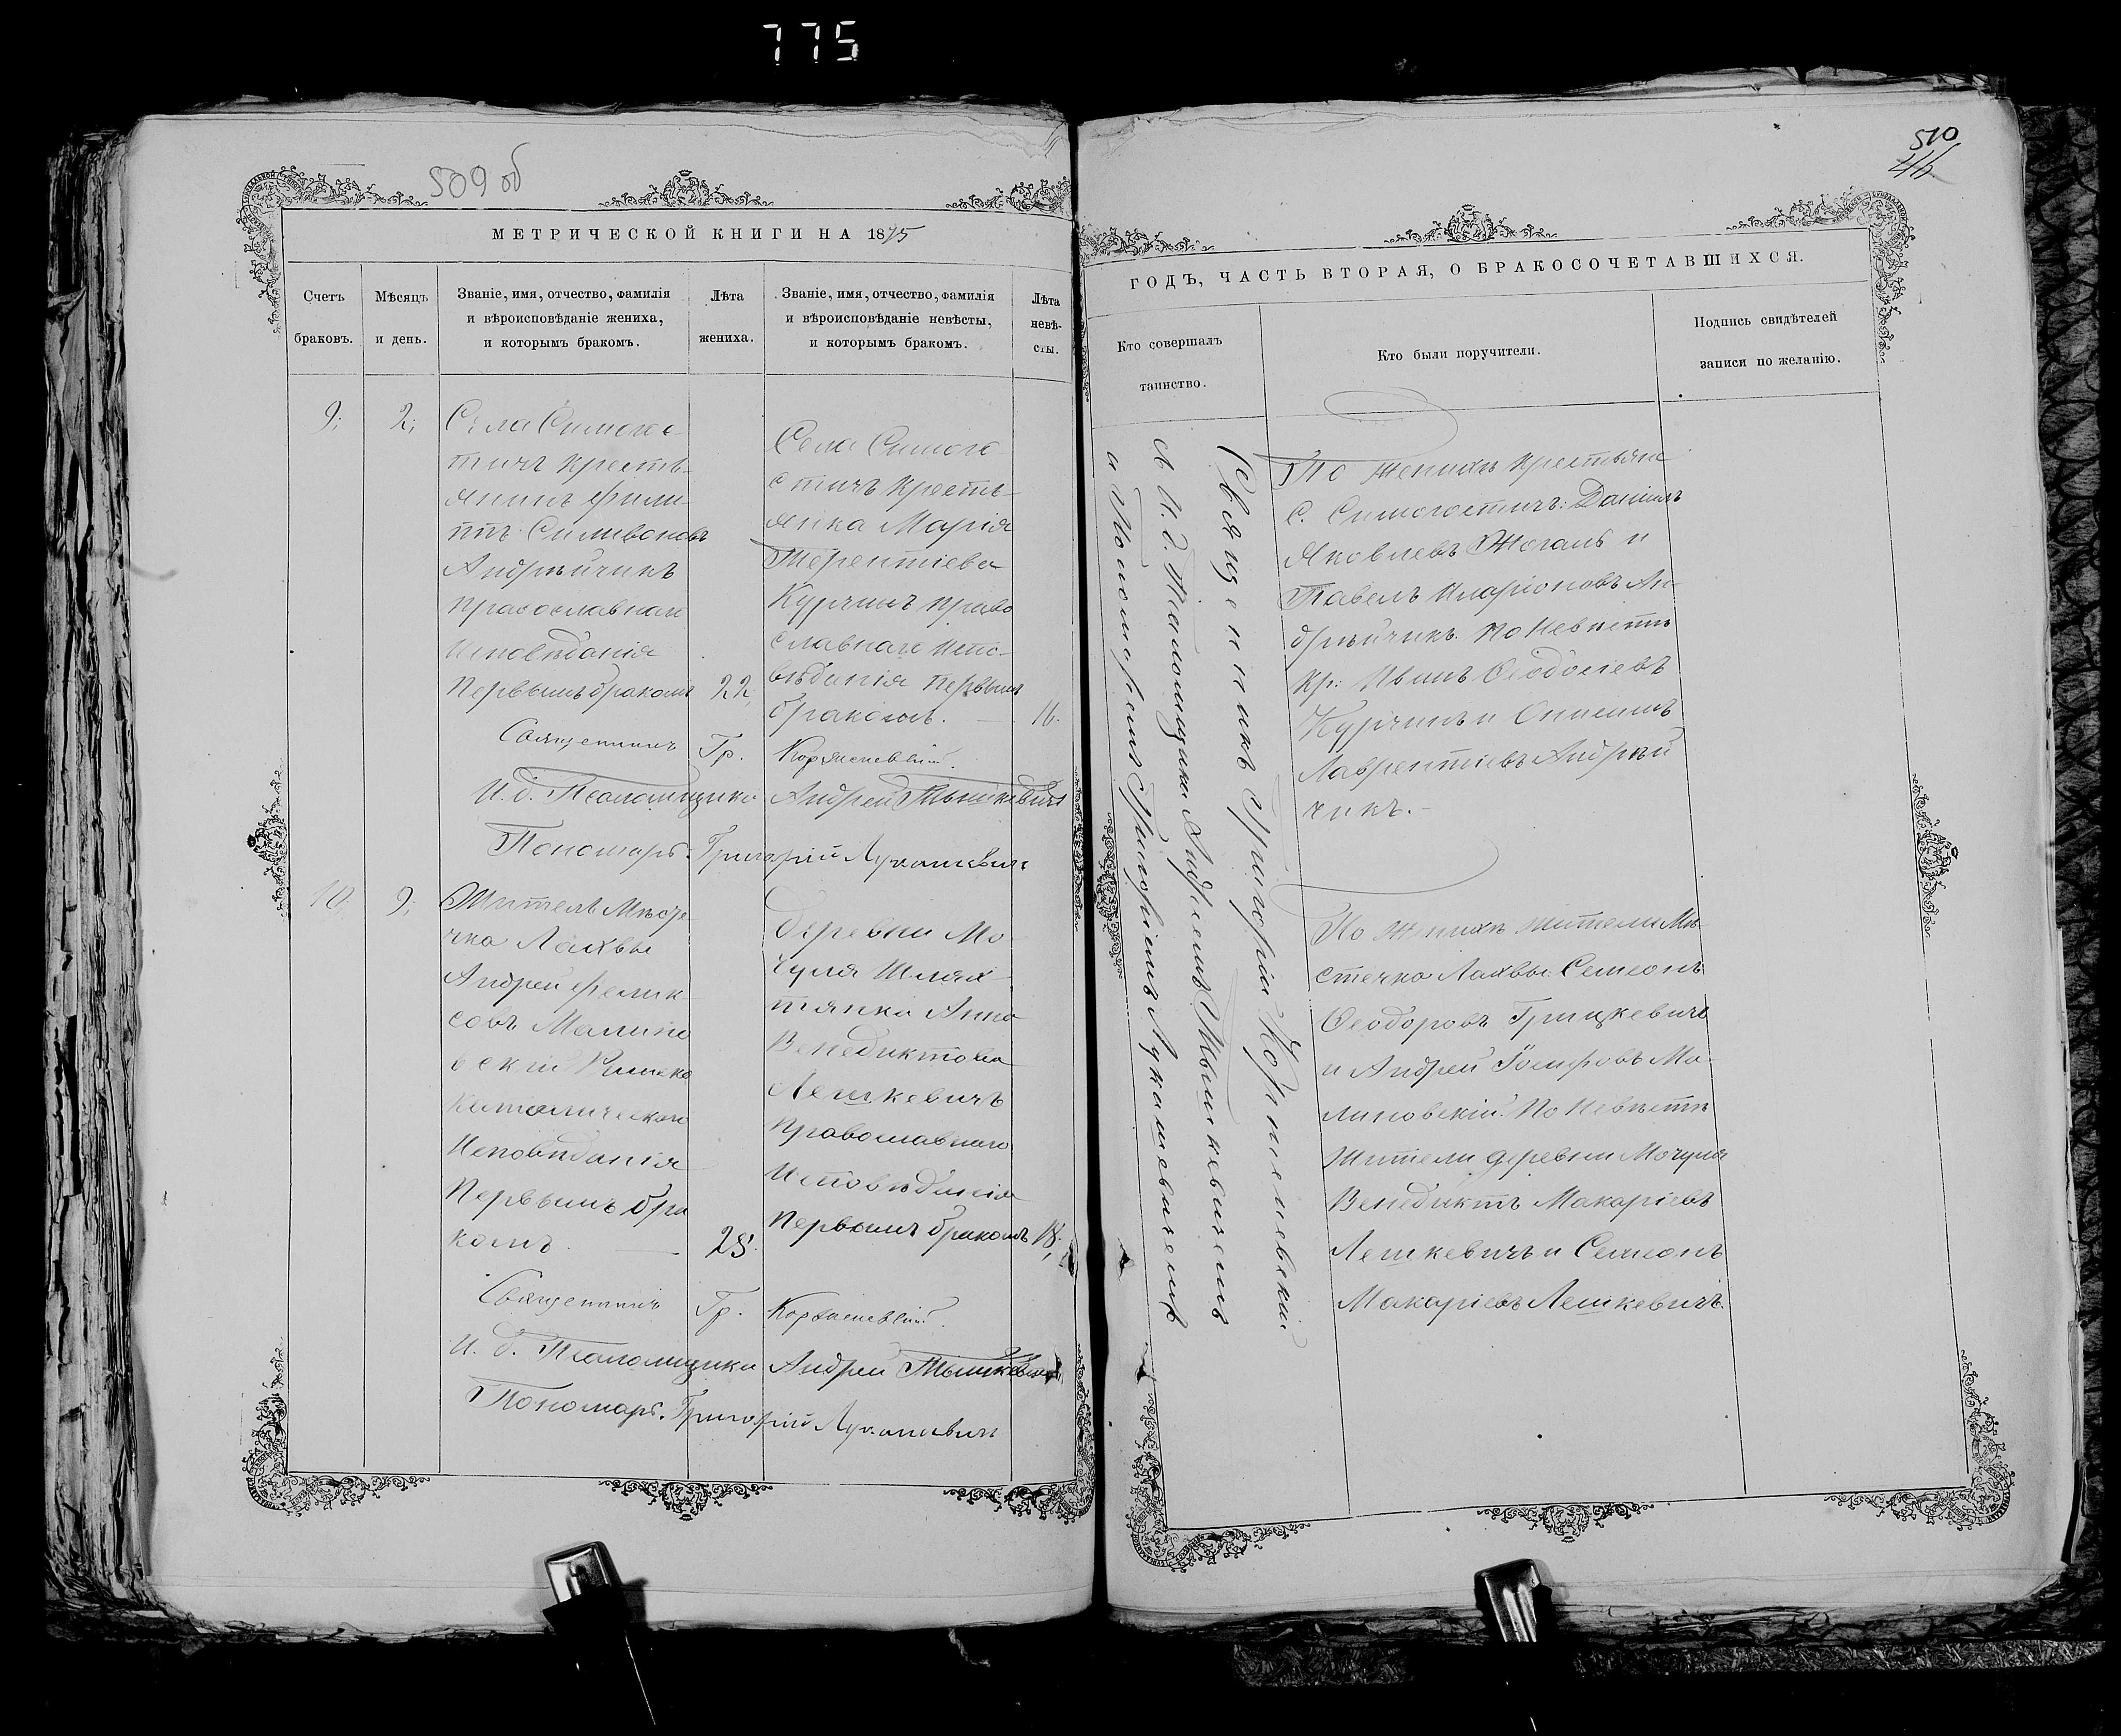 775
509 об
510
46
МЕТРИЧЕСКОЙ КНИГИ НА 1875
Счетъ
браковъ.
Мѣсяцъ
и день.
Званіе, имя, отчество, фамилія
и вѣроисповѣданіе жениха,
и которымъ бракомъ.
Лѣта
жениха.
Званіе, имя, отчество, фамилія
и вѣроисповѣданіе невѣсты,
и которымъ бракомъ.
Лѣта
невѣ-
сты.
9;
2;
Села Симого-
тичъ крестъ-
янинъ Фили-
ппъ Силивоновъ
Андрѣйчикъ
православнаго
Исповѣданія
Первымъ бракомъ
22,
Села Симого
стичъ кресть-
янка Марія
Терентіева
Курчинъ право
славнаго испо-
вѣданія первымъ
бракомъ.
16.
Священникъ Гр.
И. д. Псаломщика Андрей Мышкевичъ
Пономарь Григорій Лукашевичъ
10.
9;
Житель Мѣсте
чка Лахвы
Андрей Фелик-
совъ Малино
вскій Римско
католическаго
Исповѣданія
Первымъ бра
комъ.
25.
Деревни Мо
чуля Шлях
тянка Анна
Венедиктова
Лешкевичъ
Православнаго
Исповѣданія
Первымъ бракомъ
18.
Священникъ Гр.
И. д. Псаломщика Андрей Мышкевичъ
Пономарь. Григорій Лукашевичъ
ГОДЪ, ЧАСТЬ ВТОРАЯ, О БРАКОСОЧЕТАВШИХСЯ.
Кто совершалъ
таинство.
Кто были поручители.
Подпись свидѣтелей
записи по желанію.
Священникъ Григорій
съ И. д. Псаломщика Андреемъ Мышкевичемъ
и Пономаремъ Григоріемъ Лукашевичемъ
По Женихѣ крестьяне
С. Симогостичъ: Даніилъ
Яковлевъ Жогаль и
Павелъ Иларіоновъ Ан-
дрѣйчикъ. По Невѣстѣ
Кр: Иванъ Ѳеодосіевъ
Курчинъ и Онисимъ
Лаврентіевъ Андрѣй
чикъ.
По Женихѣ жители Мѣ-
стечка Лахвы: Семіонъ
Ѳеодоровъ Грицкевичъ
и Андрей Іосифовъ Ма-
линовскій. По Невѣстѣ
Жители деревни Мочуля
Венедиктъ Макаріевъ
Лешкевичъ и Семіонъ
Макаріевъ Лешкевичъ.